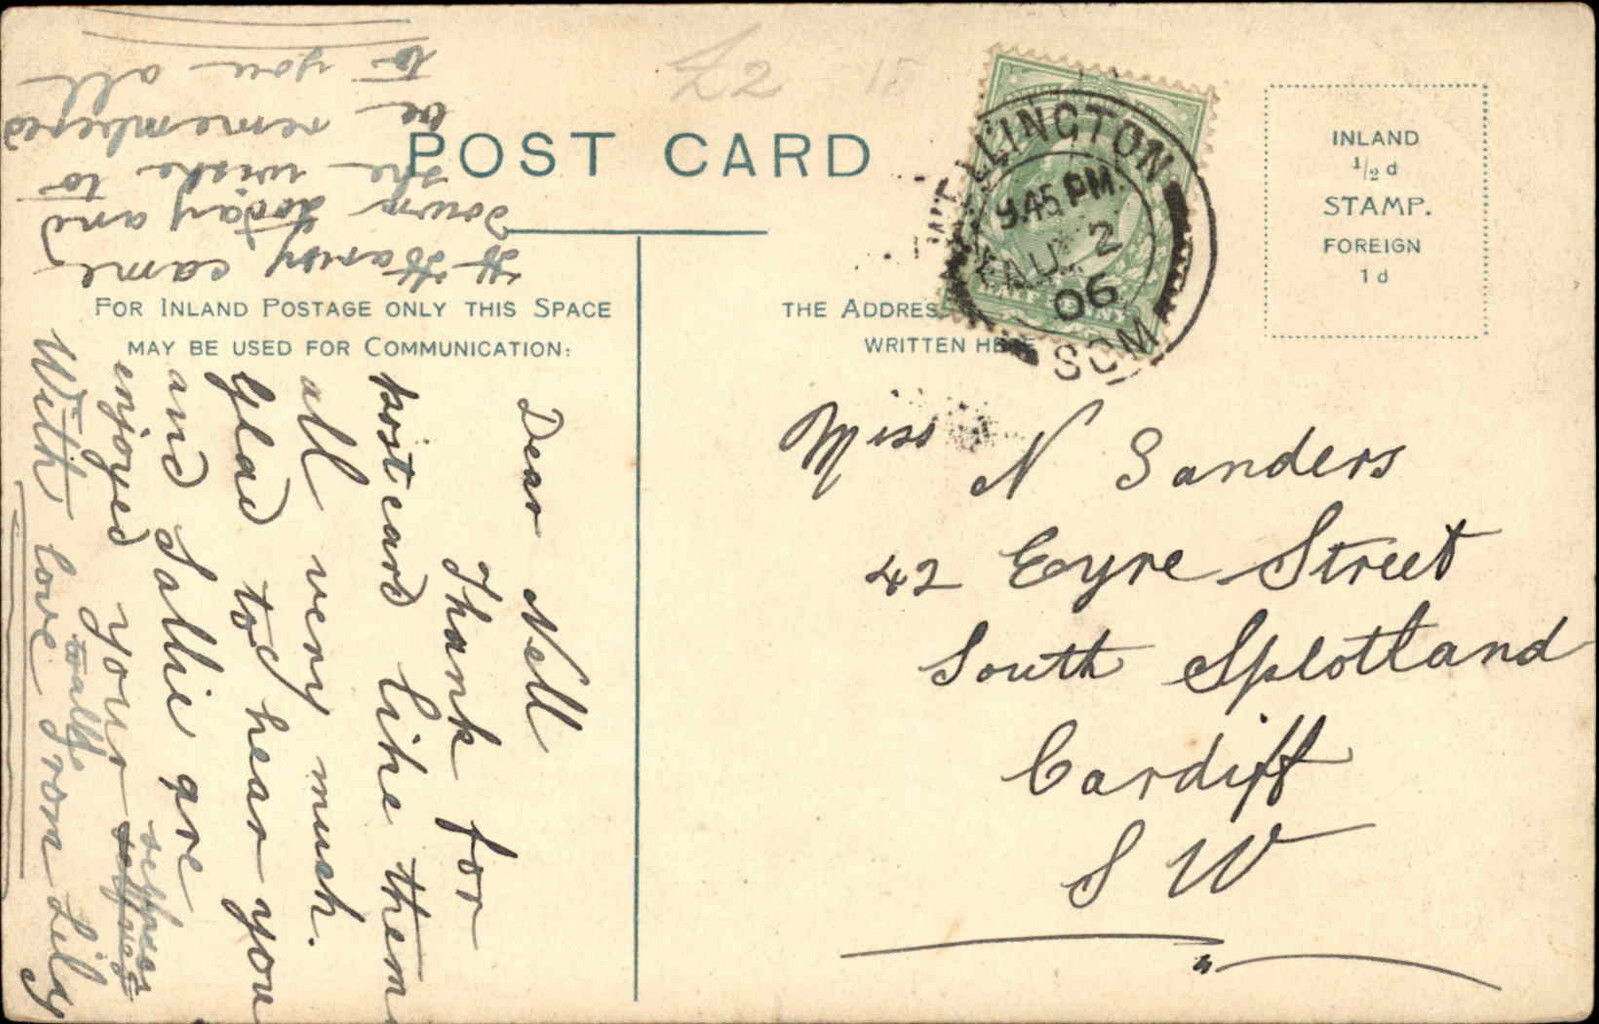 £2 15
POST CARD
FOR INLAND POSTAGE ONLY THIS SPACE
MAY BE USED FOR COMMUNICATION:
THE ADDRES
WRITTEN HERE
INLAND
1/2 d
STAMP.
FOREIGN
1 d
WELLINGTON
9.45 PM
AU 2
06
SOM
Miss N Sanders
42 Eyre Street
South Splotland
Cardiff
S W
Dear Nell
Thank for
post card like them
all very much.
Glad to hear you
and Sallie are
enjoyed your
selfves
to all
With love from Lily
Harry came
down today and
he wishe to
be remembered
to you all